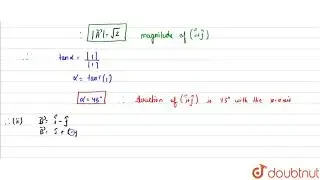 ∴ |A⃗| = √2 magnitude of (î+ĵ)
∴ tanα = |1|/|1|
α = tan⁻¹(1)
α = 45° ∴ direction of (î+ĵ) is 45° with the x-axis
∴(ii) B⃗ = î - ĵ
doubtnut